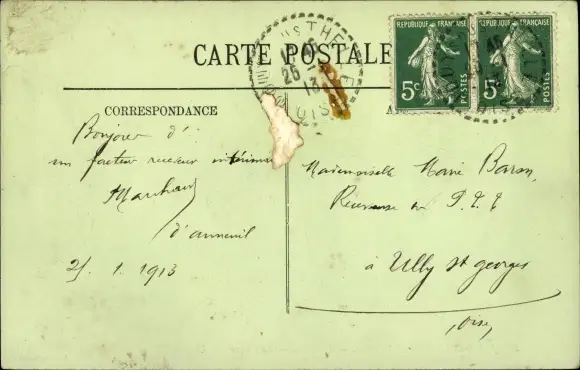 CARTE POSTALE
RÉPUBLIQUE FRANÇAISE
5c
POSTES
RÉPUBLIQUE FRANÇAISE
5c
POSTES
THERE
26
13
OISE
CORRESPONDANCE
A
Bonjour d'
un facteur receveur intérimaire
Marchand
d'auneuil
25. 1. 1913
Mademoiselle Marie Baron,
Receveuse des P.T.T
à Ully St georges
Oise,